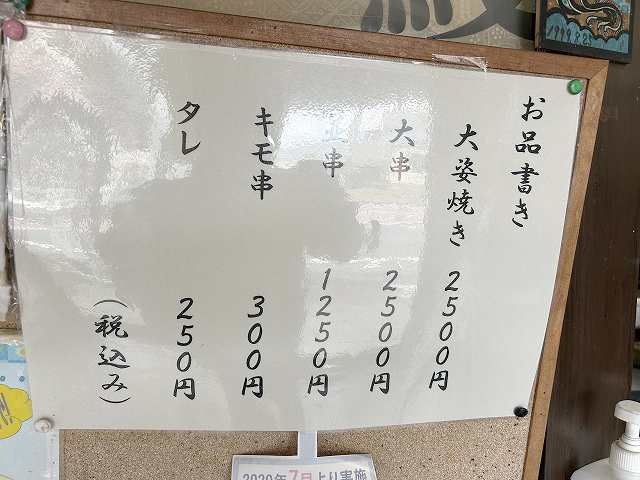 お品書き
大姿焼き 2500円
大串 2500円
串 1250円
キモ串 300円
タレ 250円
(税込み)
2020年7月より実施